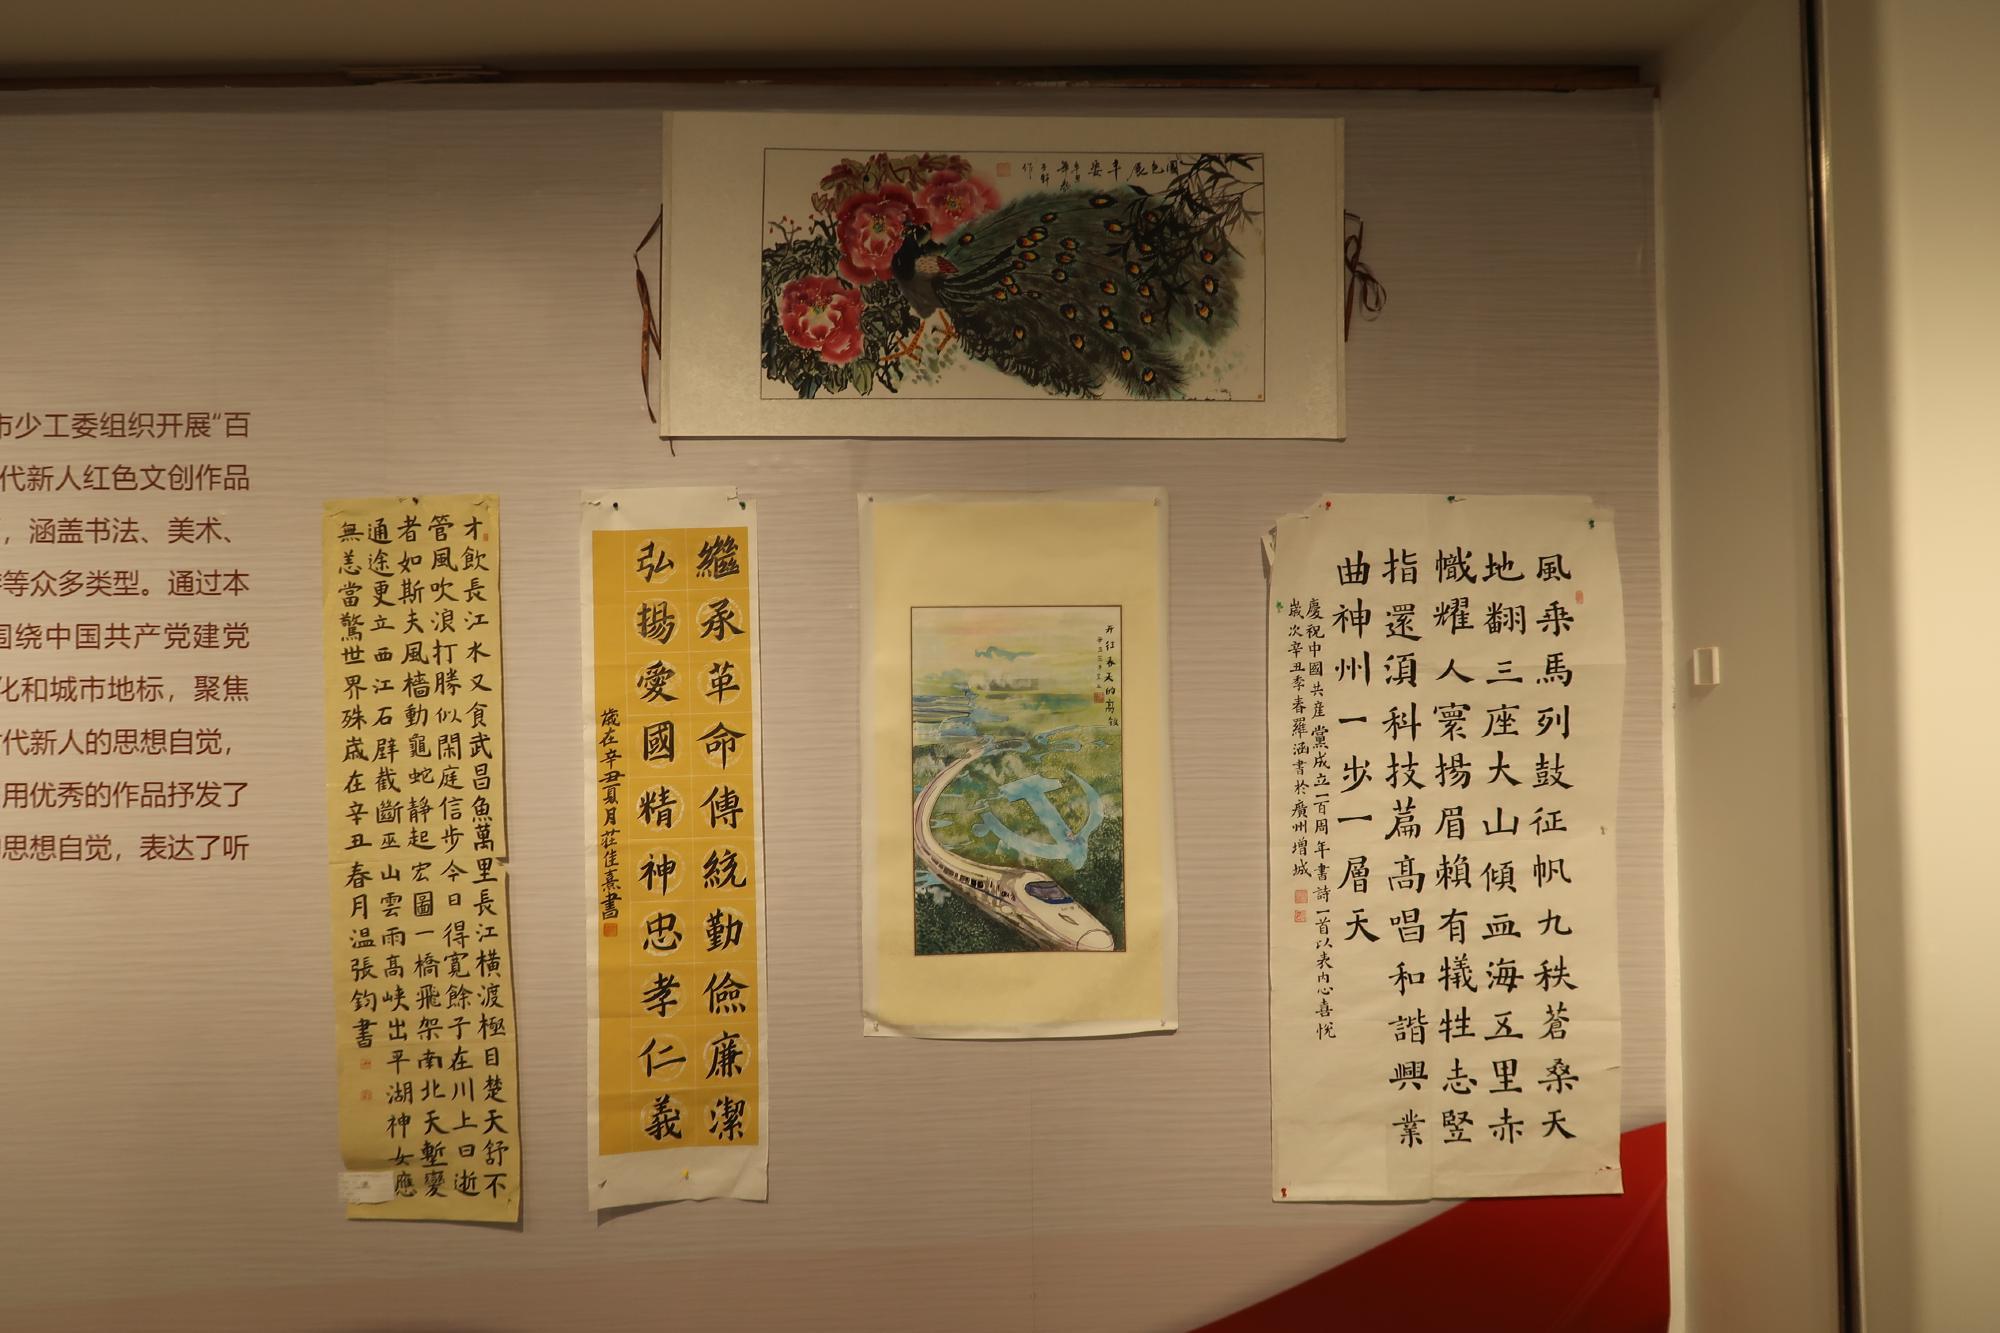 市少工委组织开展“百
代新人红色文创作品
，涵盖书法、美术、
等众多类型。通过本
围绕中国共产党建党
化和城市地标，聚焦
代新人的思想自觉，
用优秀的作品抒发了
思想自觉，表达了听
國色展
才飲長江水又食武昌魚萬里長江橫渡極目楚天舒不
管風吹浪打勝似閑庭信步今日得寬餘子在川上曰逝
者如斯夫風檣動龜蛇靜起宏圖一橋飛架南北天塹變
通途更立西江石壁截斷巫山雲雨高峽出平湖神女應
無恙當驚世界殊歲在辛丑春月温張鈞書
繼承革命傳統勤儉廉潔
弘揚愛國精神忠孝仁義
歲在辛丑夏月莊佳熹書
开往春天的高鉄
風乘馬列鼓征帆九秩蒼桑天
地翻三座大山傾血海五里赤
幟耀人寰揚眉賴有犠牲志竪
指還須科技篇高唱和諧興業
曲神州一步一層天
慶祝中國共産黨成立一百周年書詩一首以表内心喜悅
歲次辛丑季春羅涵書於廣州增城